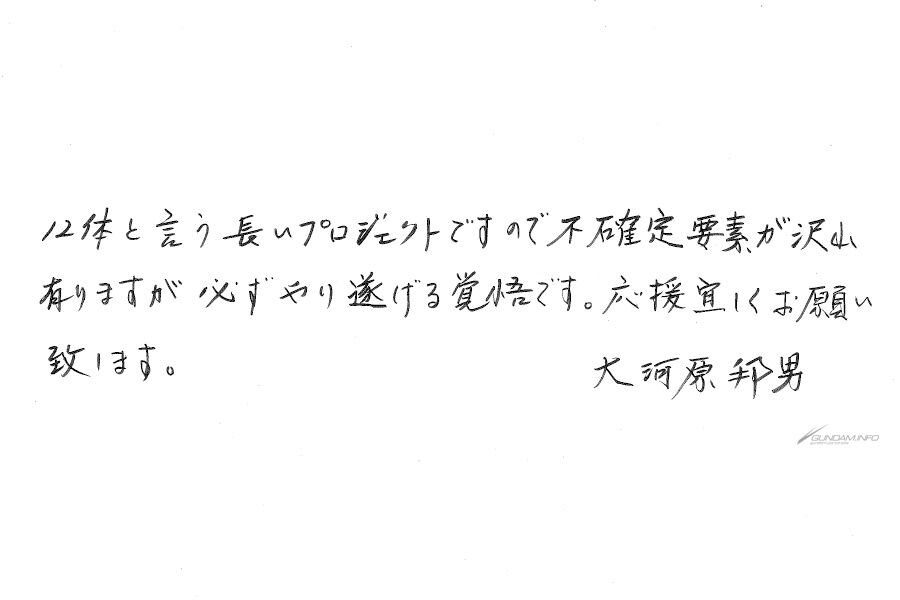 12体と言う長いプロジェクトですので不確定要素が沢山
有りますが必ずやり遂げる覚悟です。応援宜しくお願い
致します。
大河原邦男
GUNDAM.INFO